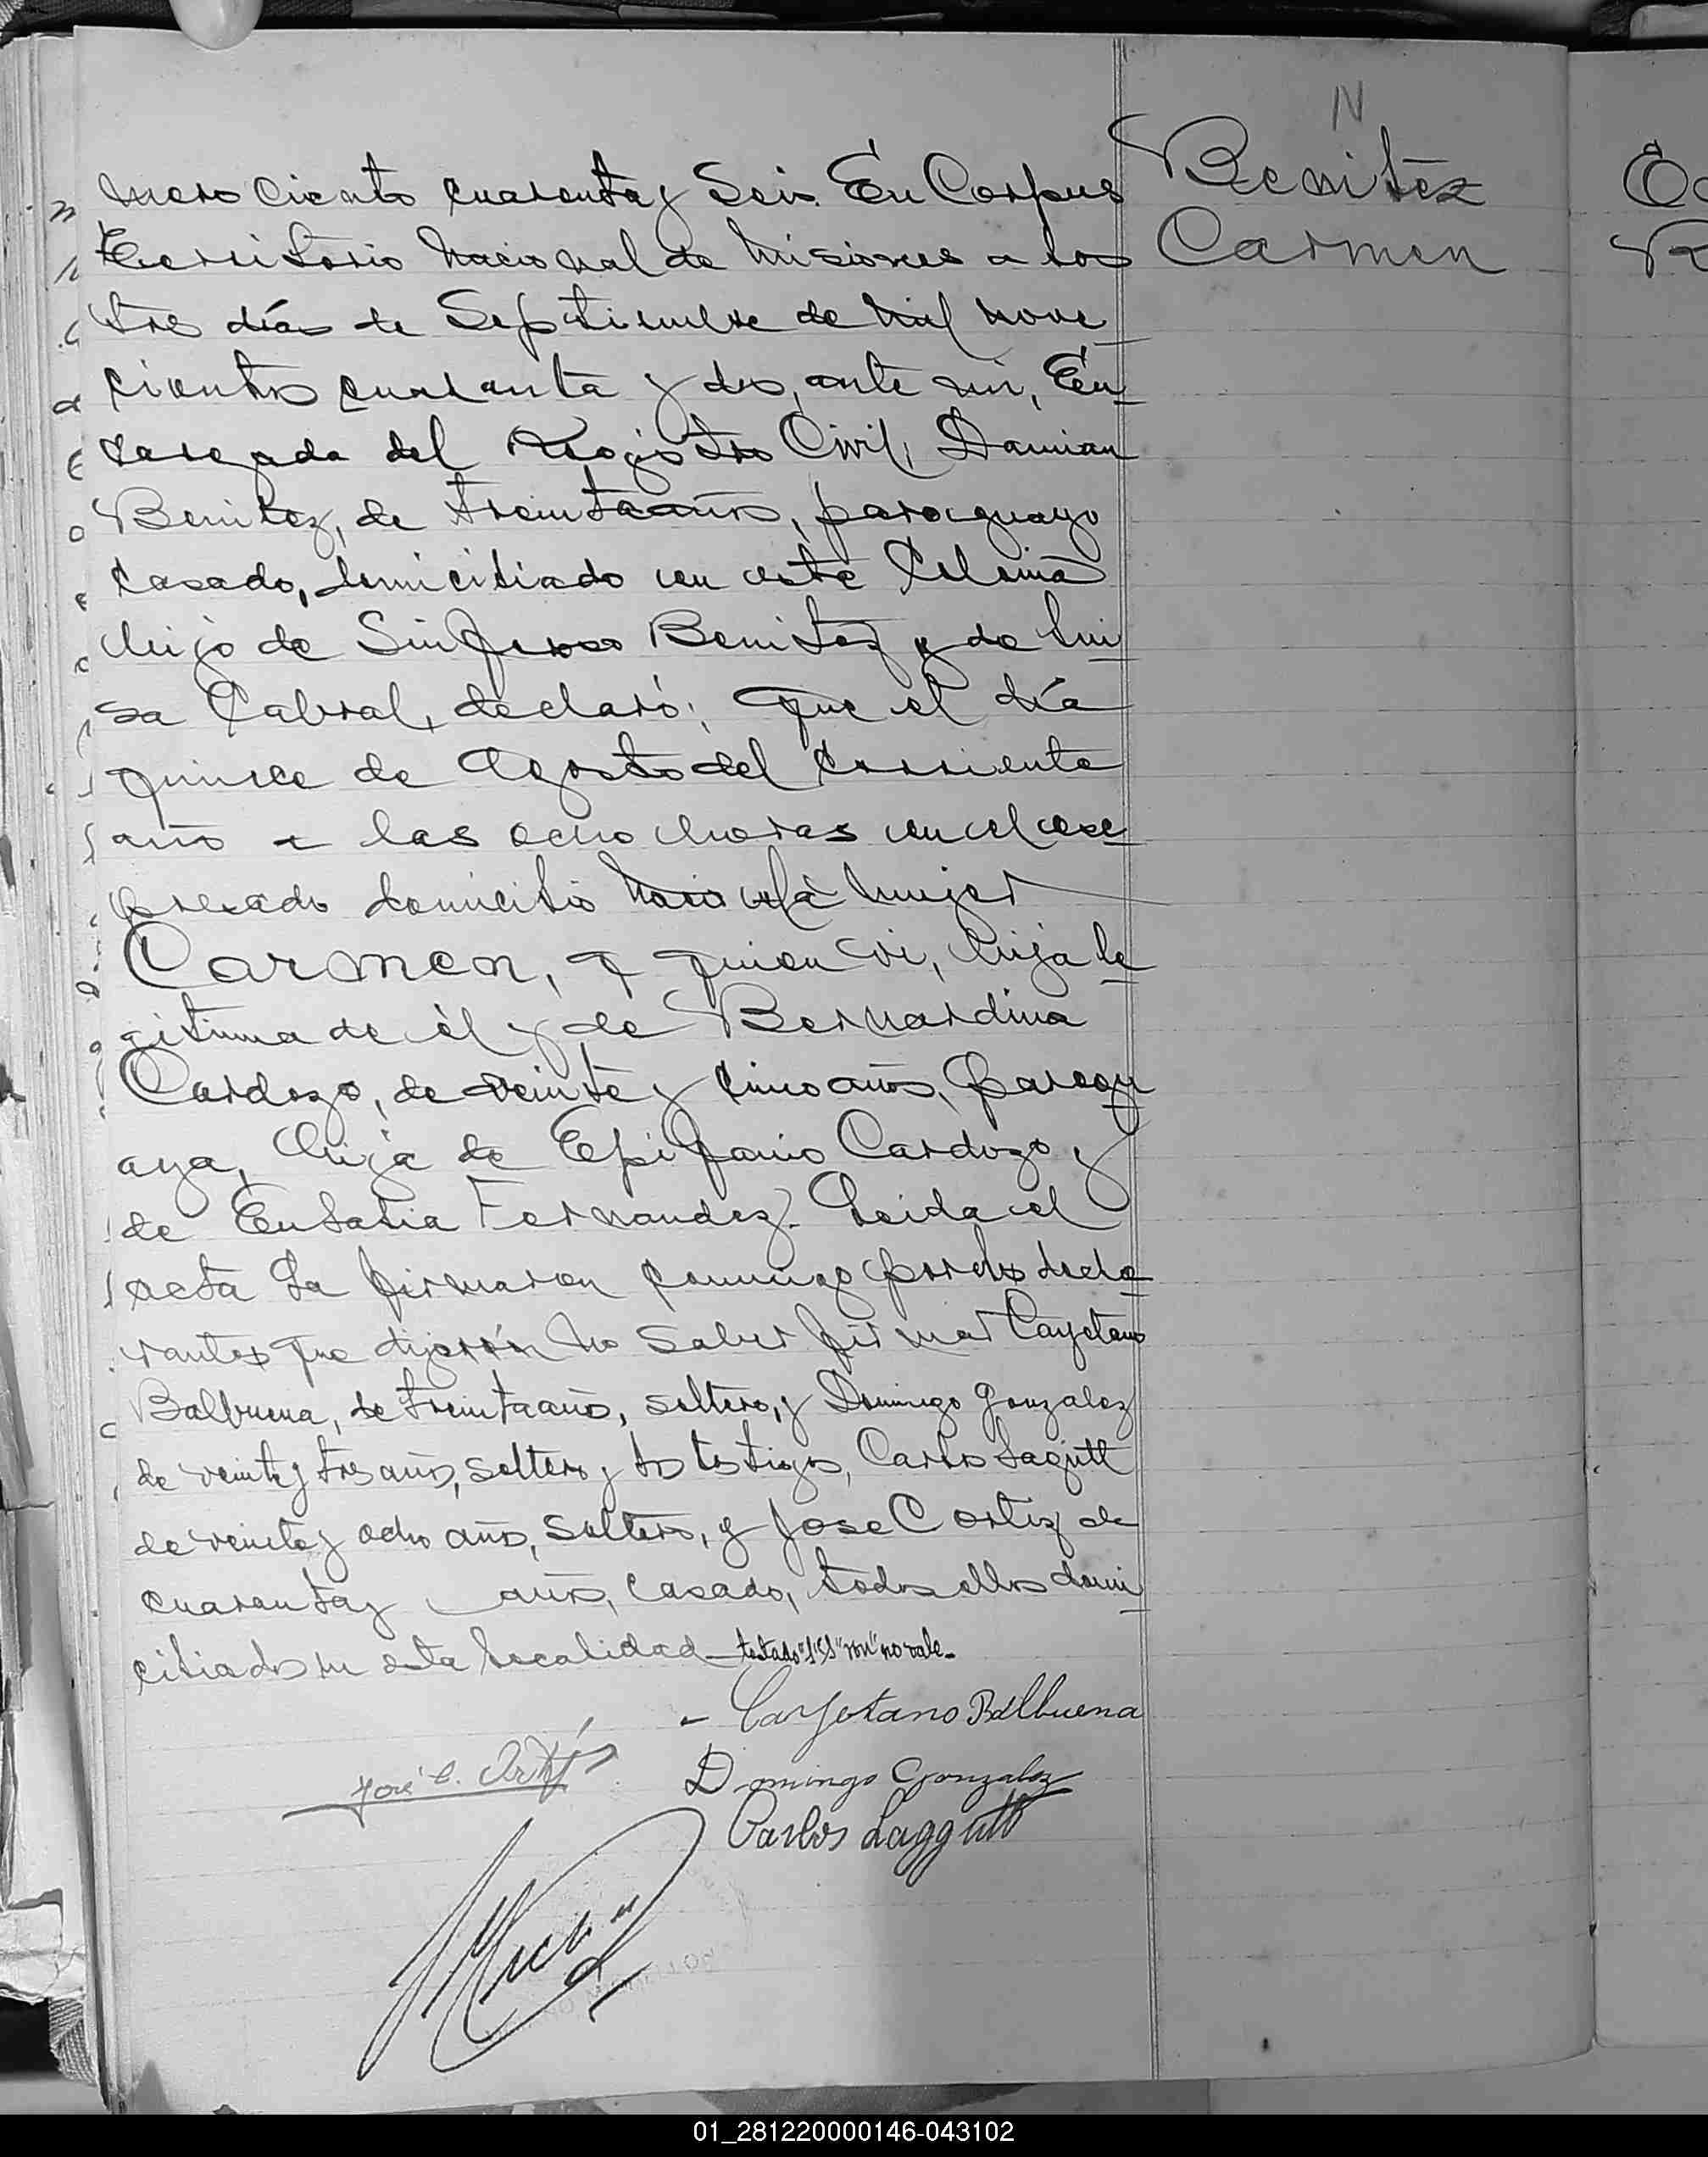 N
Benitez
Carmen
mero Ciento cuarenta y Seis. En Corpus
Territorio Nacional de Misiones a los
tres días de Septiembre de mil nove
cientos cuarenta y dos, ante mi, En
cargada del Registro Civil, Damian
Benitez, de treinta años, paraguayo
casado, domiciliado en esta Colonia
hijo de Sinforoso Benitez y de Lui
sa Cabral, declaró: Que el día
quince de Agosto del corriente
año a las ocho horas en el exe
presado domicilio nació la mujer
Carmen, a quien vi, hija le
gitima de él y de Bernardina
Cardozo, de veinte y cinco años, paragu
aya, hija de Epifanio Cardozo y
de Eulalia Fernandez. Leida el
acta la firmaron conmigo por los decla
rantes que dijeron no saber firmar Cayetano
Balbuena, de treinta años, soltero, y Domingo Gonzalez
de veinte y tres años, soltero y los testigos, Carlos Lagutt
de veinte y ocho años, soltero, y Jose C Ortiz de
cuarenta y años, casado, todos ellos domi
ciliados en esta localidad no vale.
Cayetano Balbuena
José C. Ortiz
Domingo Gonzalez
Carlos Laggutt
01_281220000146-043102